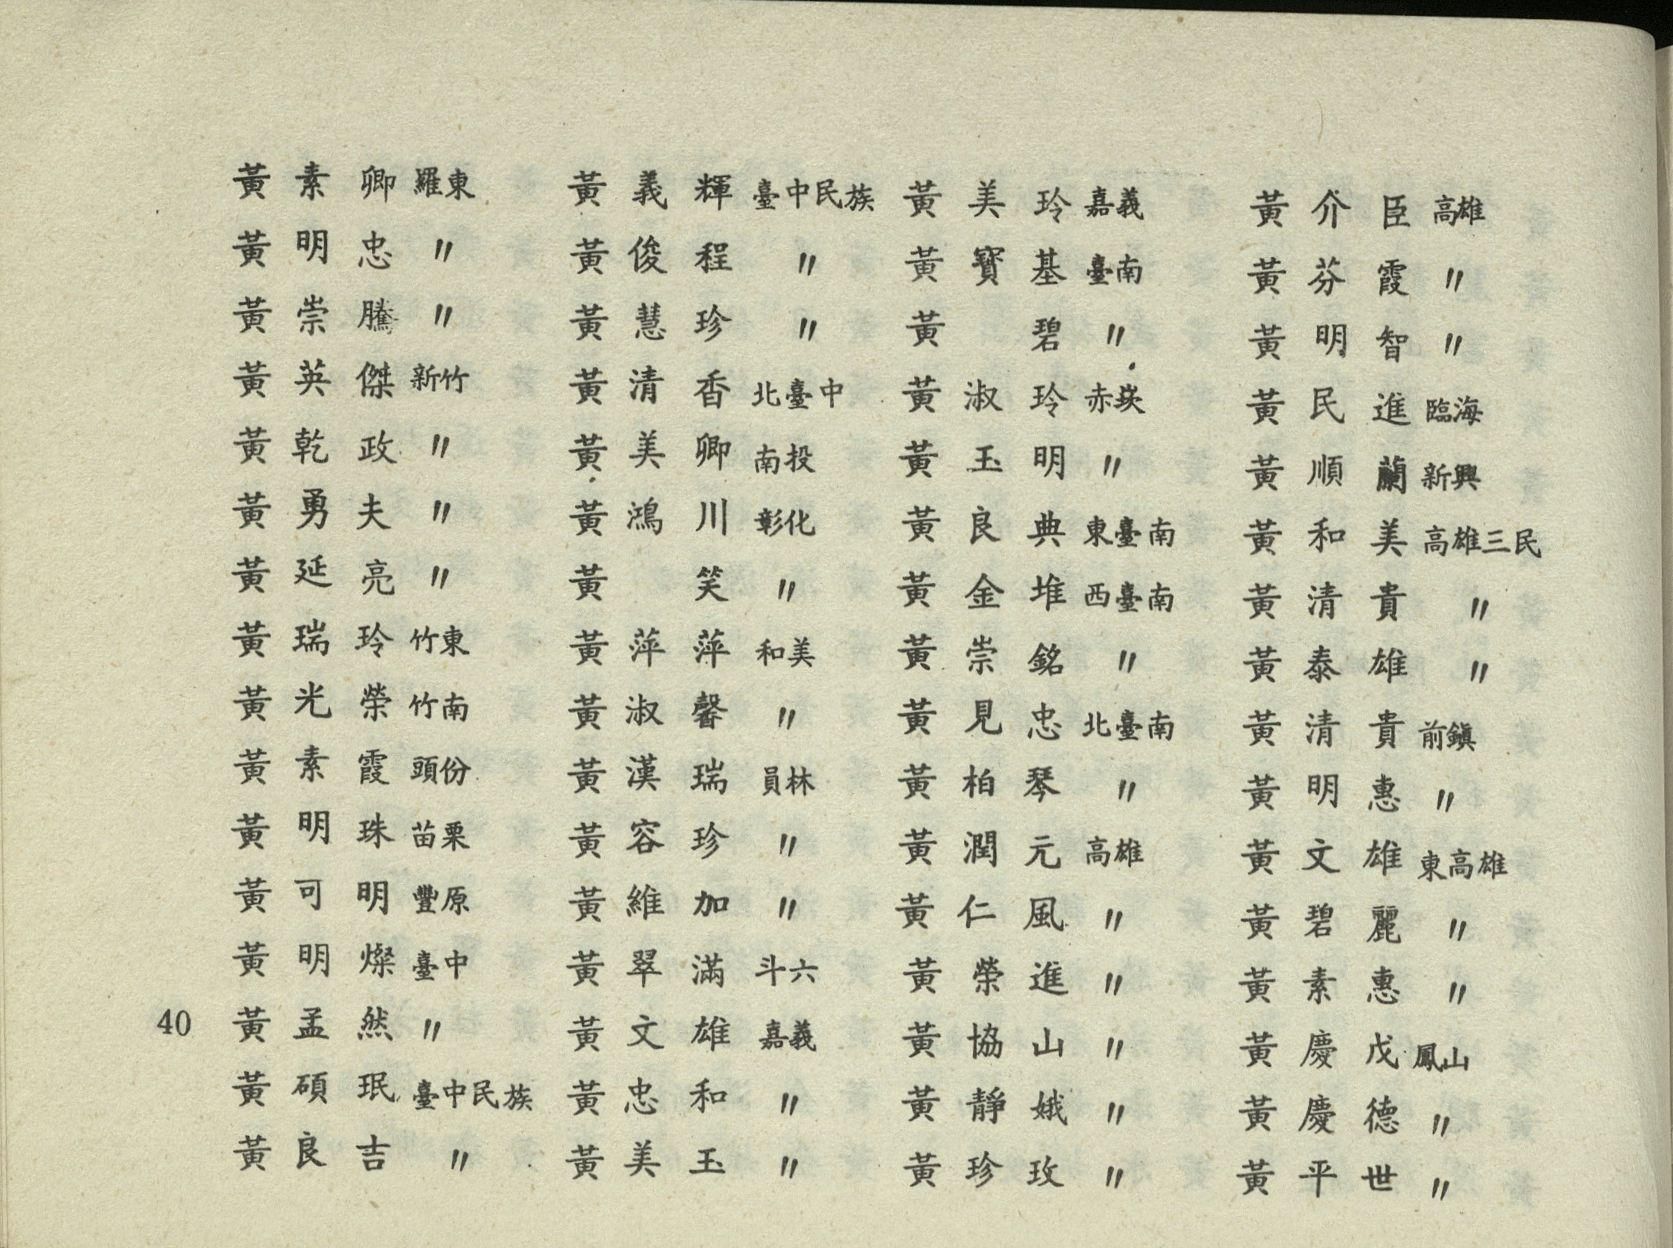 黃素卿 羅東
黃明忠 〃
黃崇騰 〃
黃英傑 新竹
黃乾政 〃
黃勇夫 〃
黃延亮 〃
黃瑞玲 竹東
黃光榮 竹南
黃素霞 頭份
黃明珠 苗栗
黃可明 豐原
黃明燦 臺中
黃孟然 〃
黃碩珉 臺中民族
黃良吉 〃
黃義輝 臺中民族
黃俊程 〃
黃慧珍 〃
黃清香 北臺中
黃美卿 南投
黃鴻川 彰化
黃笑 〃
黃萍萍 和美
黃淑馨 〃
黃漢瑞 員林
黃容珍 〃
黃維加 〃
黃翠滿 斗六
黃文雄 嘉義
黃忠和 〃
黃美玉 〃
黃美玲 嘉義
黃寶基 臺南
黃碧 〃
黃淑玲 赤崁
黃玉明 〃
黃良典 東臺南
黃金堆 西臺南
黃崇銘 〃
黃見忠 北臺南
黃柏琴 〃
黃潤元 高雄
黃仁風 〃
黃榮進 〃
黃協山 〃
黃靜娥 〃
黃珍玫 〃
黃介臣 高雄
黃芬霞 〃
黃明智 〃
黃民進 臨海
黃順蘭 新興
黃和美 高雄三民
黃清貴 〃
黃泰雄 〃
黃清貴 前鎮
黃明惠 〃
黃文雄 東高雄
黃碧麗 〃
黃素惠 〃
黃慶戊 鳳山
黃慶德 〃
黃平世 〃
40